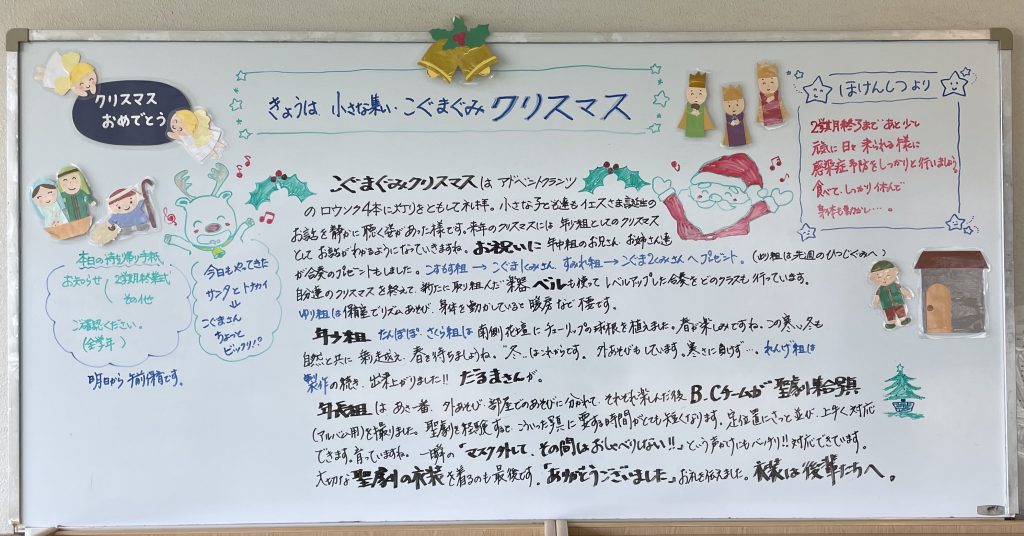 クリスマス
おめでとう
きょうは、小さな集い・こぐまぐみ クリスマス
ほけんしつより
2学期終了まで あと少し
元気に日々 来られる様に
感染症予防をしっかりと行いましょう
食べて、しっかり休んで
身体も動かし…。
本日の持ち帰り手紙
お知らせ 2学期終業式
その他
ご確認ください。
(全学年)
明日から 午前保育です。
今日もやってきた
サンタとトナカイ
↓
こぐまさん
ちょっと
ビックリ!?
こぐまぐみクリスマスは アドベントクランツ
の ロウソク4本に灯りをともして礼拝。小さな子ども達もイエスさま誕生の
お話を静かに聴く姿があった様です。来年のクリスマスには 年少組としてのクリスマス
として お話がわるようになっていきますね。お祝いに 年中組のお兄さん お姉さん達
が合奏のプレゼントもしました。こすもす組→こぐま1くみさん、すみれ組→こぐま2くみさんへプレゼント。(ゆり組は先週のひつじぐみへ)
自分達のクリスマスを終えて、新たに取り組んだ楽器 ベルも使って レベルアップした合奏をどのクラスも行っています。
ゆり組は備龍でリズムあそび、身体を動かしていると 暖房なしで 棲です。
年少組 たんぽぽ、さくら組は 南側花壇に チューリップの球根を植えました。春が楽しみですね。この寒い冬も
自然と共に 乗り越え、春を待ちましょうね。"冬"はこれからです。 外あそびもしています。寒さに負けず…。れんげ組は
製作の続き、出来上がりました!! だるまさんが。
年長組 は あさ一番、外あそび・部屋でのあそびに分かれて、それぞれ楽しんだ後 B.Cチームが 聖劇集合写真
(アルバム用)を撮りました。聖劇を経験すると、こういった写真に要する時間がとても短くなります。定位置にさっと並び、上手く対応
できます。育っていますね。一瞬の「マスク外して、その間はおしゃべりしない!!」という声かけにもバッチリ!!対応できています。
大切な 聖劇の衣装を着るのも最後です。「ありがとうございました」お礼を伝えました。衣装は後輩たちへ。